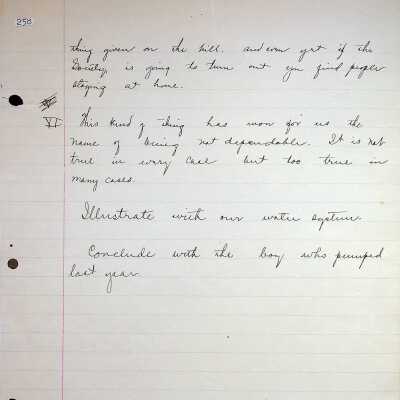 258
thing given on the hill. and even yet if the
Society is going to turn out you find people
staying at home.
VI This kind of thing has won for us the
name of being not dependable. It is not
true in every case but too true in
many cases.
Illustrate with our water system
Conclude with the boy who pumped
last year